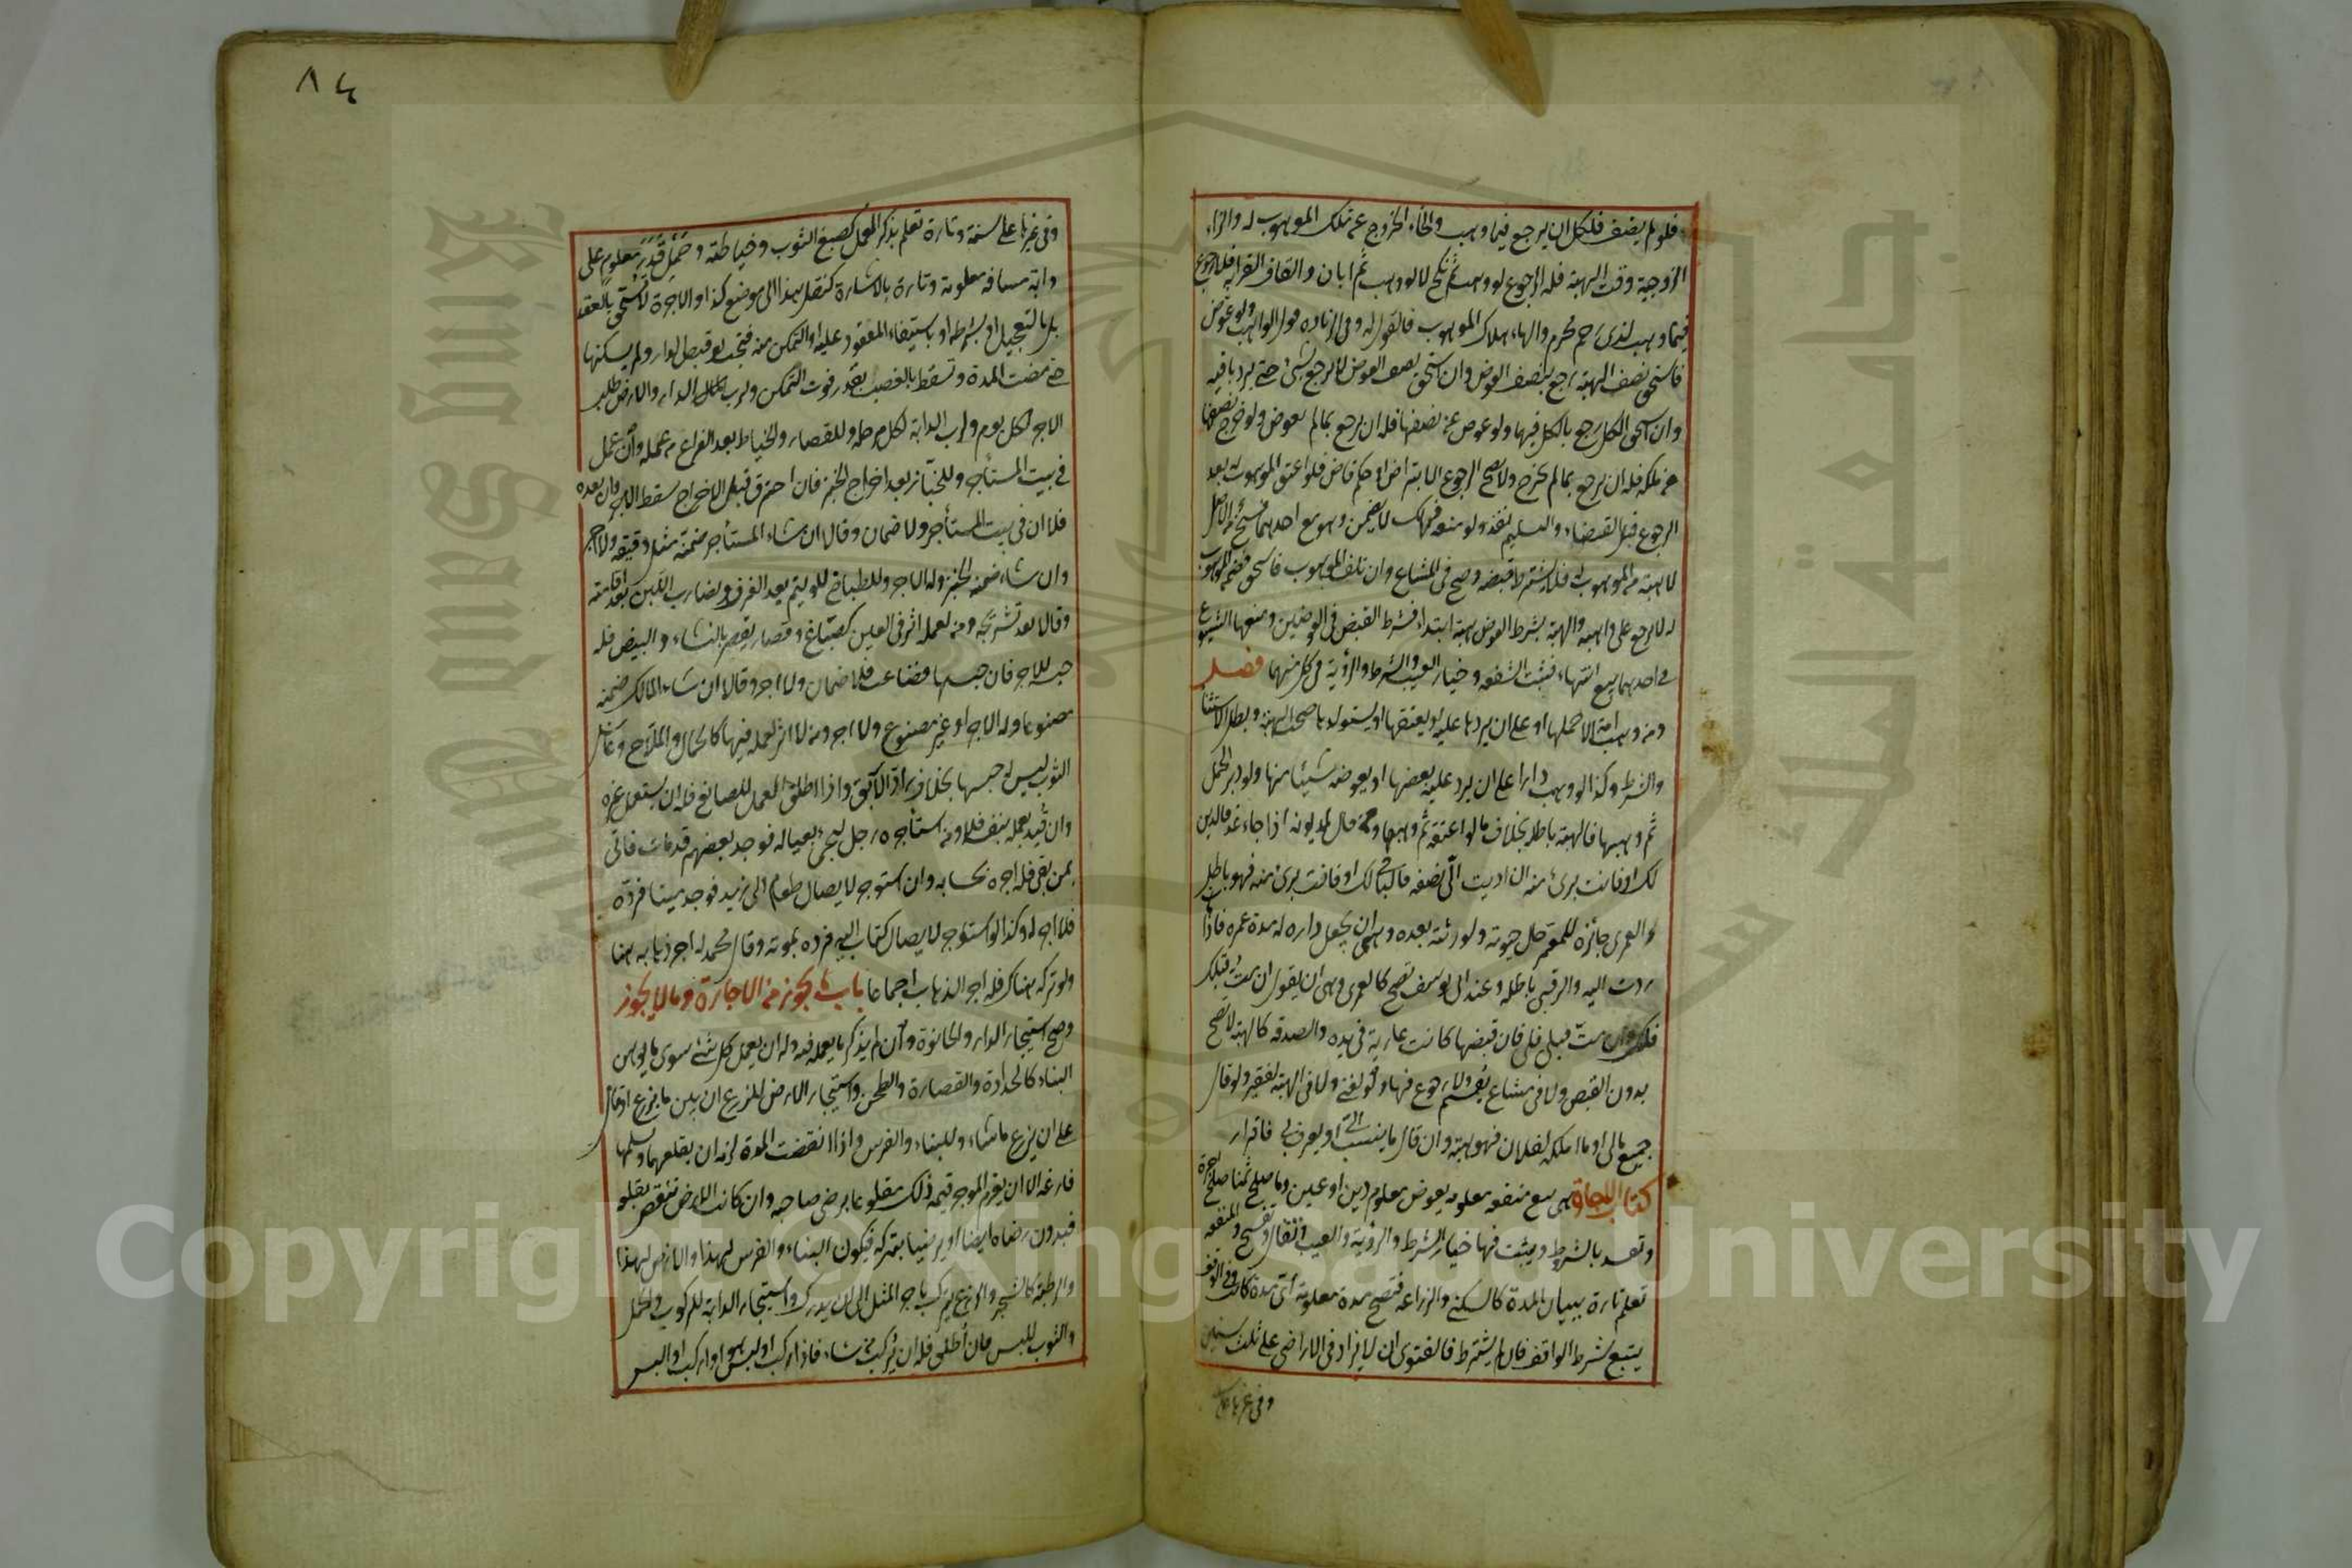 فلو لم يضف فلكل ان يرجع فيما وهب والخاء الخروج عن ملك الموهوب له والزاء
الزوجية وقت الهبة فله الرجوع لو وهب ثم نكح لا لو وهب ثم ابان والقاف القرابة فلا رجوع
فيما وهب لذي رحم محرم والهاء هلاك الموهوب فالقول له وفي الزيادة قول الواهب ولو عوض
فاستحق نصف الهبة رجع بنصف العوض وان استحق نصف العوض لا يرجع بشئ حتى يرد باقيه
وان استحق الكل رجع بالكل فيهما ولو عوض عن نصفها فله ان يرجع بما لم يعوض ولو خرج نصفها
عن ملكه فله ان يرجع بما لم يخرج ولا يصح الرجوع الا بتراض او حكم قاض فلو اعتق الموهوب له بعد
الرجوع قبل القضاء والتسليم نفذ ولو منعه فهلك لا يضمن وهو مع احدهما فسخ من الاصل
لا هبة من الموهوب له فلا يشترط قبضه وصح في المشاع وان تلف الموهوب فاستحق فضمن الموهوب
له لا يرجع على واهبه والهبة بشرط العوض هبة ابتداء فشرط القبض في العوضين ومنعها الشيوع
في احدهما بيع انتهاء فتثبت الشفعة وخيار العيب والشرط والرؤية في كل منهما فصل
ومن وهب امة الا حملها او على ان يردها عليه او يعتقها او يستولدها صحت الهبة وبطل الاستثناء
والشرط وكذا لو وهب دارا على ان يرد عليه بعضها او يعوضه شيئا منها ولو دبر الحمل
ثم وهبها فالهبة باطلة بخلاف ما لو اعتقه ثم وهبها ومن قال لمديونه اذا جاء غد فالدين
لك او فانت برئ منه ان اديت الي نصفه فالباقي لك او فانت برئ منه فهو باطل
والعمرى جائزة للمعمر حال حيوته ولورثته بعده وهي ان يجعل داره له مدة عمره فاذا مات
ردت اليه والرقبى باطلة وعند ابي يوسف تصح كالعمرى وهي ان يقول ان مت قبلك
فلك وان مت قبلي فلي فان قبضها كانت عارية في يده والصدقة كالهبة لا تصح
بدون القبض ولا في مشاع يقسم ولا رجوع فيها ولو لغني ولا في الهبة لفقير ولو قال
جميع مالي او ما املكه لفلان فهو هبة وان قال ما ينسب الي او يعرف بي فاقرار
كتاب الاجارة هي بيع منفعة معلومة بعوض معلوم دين او عين وما صلح ثمنا صلح اجرة
وتفسد بالشرط ويثبت فيها خيار الشرط والرؤية والعيب وتقال وتفسخ والمنفعة
تعلم تارة ببيان المدة كالسكنى والزراعة فتصح مدة معلومة اي مدة كانت وفي الوقف
يتبع شرط الواقف فان لم يشترط فالفتوى ان لا يزاد في الاراضي على ثلث سنين
وفي غيرها على
٨٤
وفي غيرها على سنة وتارة تعلم بذكر العمل كصبغ الثوب وخياطته وحمل قدر معلوم على
دابة مسافة معلومة وتارة بالاشارة كنقل هذا الى موضع كذا والاجرة لا تستحق بالعقد
بل بالتعجيل او بشرطه او باستيفاء المعقود عليه او التمكن منه فتجب لو قبض الدار ولم يسكنها
حتى مضت المدة وتسقط بالغصب بقدر فوت التمكن ولرب الدار والارض طلب
الاجر لكل يوم ولرب الدابة لكل مرحلة وللقصار والخياط بعد الفراغ من عمله وان عمل
في بيت المستأجر وللخباز بعد اخراج الخبز فان احترق قبل الاخراج سقط الاجر وان بعده
فلا ان في بيت المستأجر ولا ضمان وقالا ان شاء المستأجر ضمنه مثل دقيقه ولا اجر
وان شاء ضمنه الخبز وله الاجر وللطباخ للوليمة بعد الغرف ولضارب اللبن بعد اقامته
وقالا بعد تشريجه ومن لعمله اثر في العين كصباغ وقصار يقصر بالنشاء والبيض فله
حبسها للاجر فان حبسها فضاعت فلا ضمان ولا اجر وقالا ان شاء المالك ضمنه
مصنوعا وله الاجر او غير مصنوع ولا اجر ومن لا اثر لعمله فيها كالحمال والملاح وغاسل
الثوب ليس له حبسها بخلاف راد الآبق واذا اطلق العمل للصانع فله ان يستعمل غيره
وان قيد بعمله بنفسه فلا ومن استأجره رجل ليجئ بعياله فوجد بعضهم قد مات فاتى
بمن بقي فله اجره بحسابه وان استوجر لايصال طعام الى زيد فوجد ميتا فرده
فلا اجر له وكذا لو استوجر لايصال كتاب اليه فرده لموته وقال محمد له اجر ذهابه هنا
ولو تركه هناك فله اجر الذهاب اجماعا باب ما يجوز من الاجارة وما لا يجوز
وصح استيجار الدار والحانوت وان لم يذكر ما يعمله فيه وله ان يعمل كل شئ سوى ما يوهن
البناء كالحدادة والقصارة والطحن واستيجار الارض للزرع ان بين ما يزرع او قال
على ان يزرع ما شاء وللبناء والغرس واذا انقضت المدة لزمه ان يقلعهما ويسلمها
فارغة الا ان يغرم الموجر قيمة ذلك مقلوعا برضى صاحبه وان كانت الارض تنقص بقلعه
فبدون رضاه ايضا او يرضيا بتركه فيكون البناء والغرس لهذا والارض لهذا
والرطبة كالشجر والزرع يترك باجر المثل الى ان يدرك واستيجار الدابة للركوب والحمل
والثوب للبس فان اطلق فله ان يركب من شاء فاذا ركب او لبس هو او اركب او البس